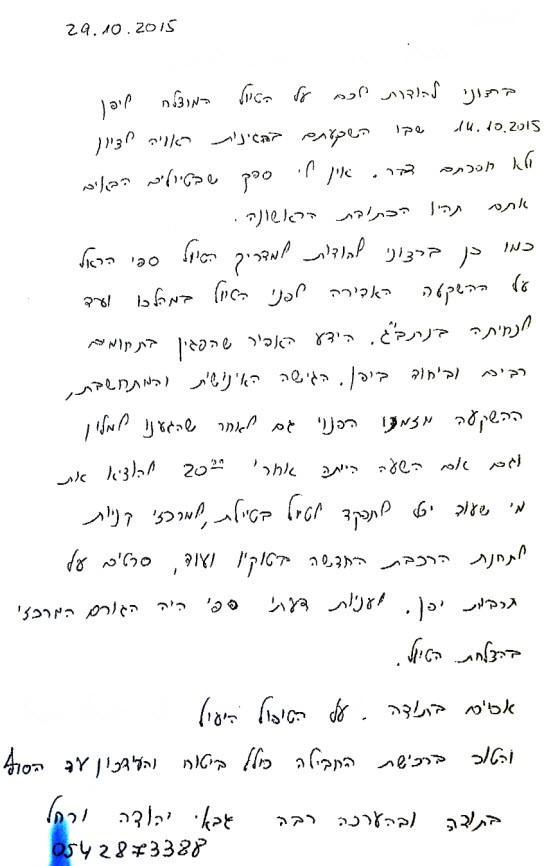 29.10.2015
ברצוני להודות לכם על הטיול המוצלח ליפן
14.10.2015 שבו השקעתם בהגינות ראויה לציון
ולא חסכתם דבר. אין לי ספק שבטיולים הבאים
אתם תהיו הכתובת הראשונה.
כמו כן ברצוני להודות למדריך הטיול ספי הראל
על ההשקעה האדירה לפני הטיול במהלכו ועד
לנחיתה בנתב"ג. הידע האדיר שהפגין בתחומים
רבים וביחוד ביפן. הגישה האינושית והמתחשבת,
ההשקעה מזמנו הפנוי גם לאחר שהגענו למלון
וגם אם השעה היתה אחרי 20:00 להוציא את
מי שעוד יכל לתפקד לטיול בטיילת, למרכזי קניות
לתחנת הרכבת החדשה בטוקיו ועוד, סרטים על
תרבות יפן. לעניות דעתי ספי היה הגורם המרכזי
בהצלחת הטיול.
אסיים בתודה. על הטיפול היעיל
והטוב ברכישת החבילה כולל ביטוח והעידכון עד הסוף
בתודה ובהערכה רבה גבאי יהודה ורחל
0542873388